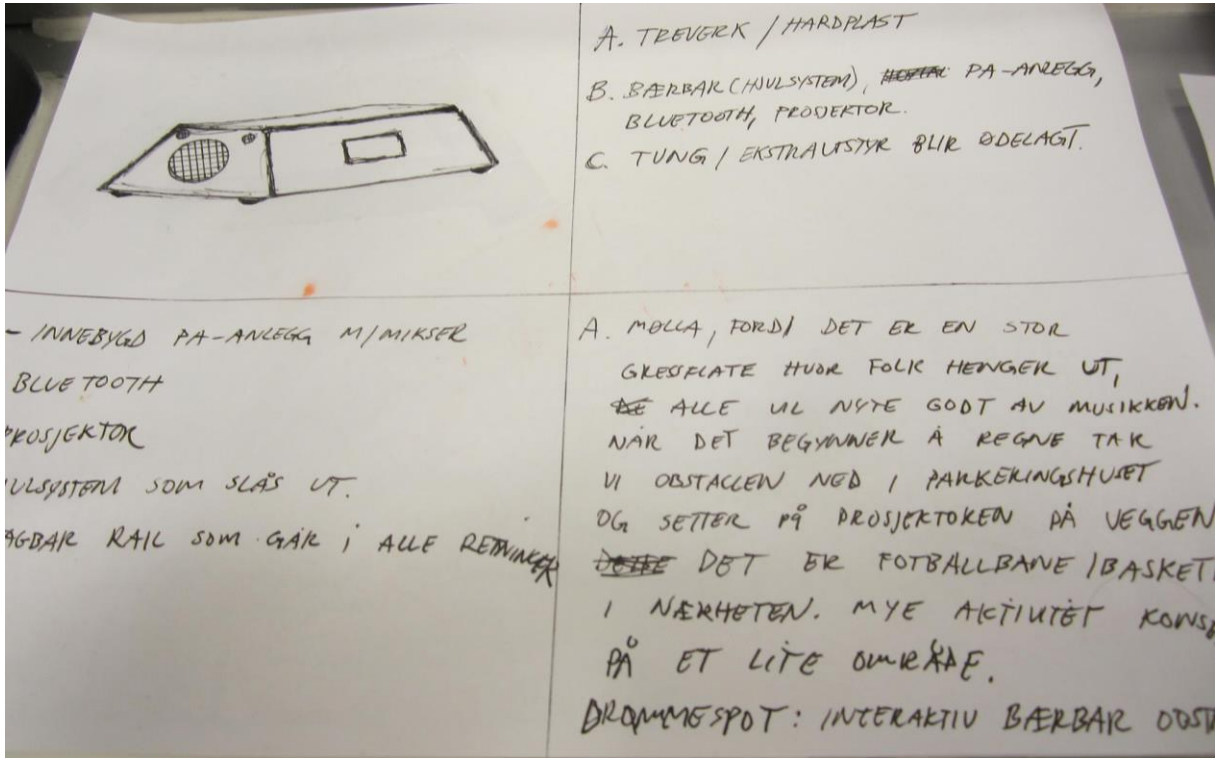 A. TREVERK / HARDPLAST
B. BÆRBAR (HJULSYSTEM), PA-ANLEGG,
BLUETOOTH, PROSJEKTOR.
C. TUNG / EKSTRAUTSTYR BLIR ØDELAGT.
- INNEBYGD PA-ANLEGG M/MIKSER
BLUETOOTH
PROSJEKTOR
ULSYSTEM SOM SLÅS UT.
AGBAR RAIL SOM GÅR I ALLE RETNINGER
A. MØLLA, FORDI DET ER EN STOR
GRESSFLATE HVOR FOLK HENGER UT,
ALLE VIL NYTE GODT AV MUSIKKEN.
NÅR DET BEGYNNER Å REGNE TAR
VI OBSTACLEN NED I PARKERINGSHUSET
OG SETTER PÅ PROSJEKTOREN PÅ VEGGEN
DET ER FOTBALLBANE / BASKET
I NÆRHETEN. MYE AKTIVITET KONS
PÅ ET LITE OMRÅDE.
DRØMMESPOT: INTERAKTIV BÆRBAR OBST